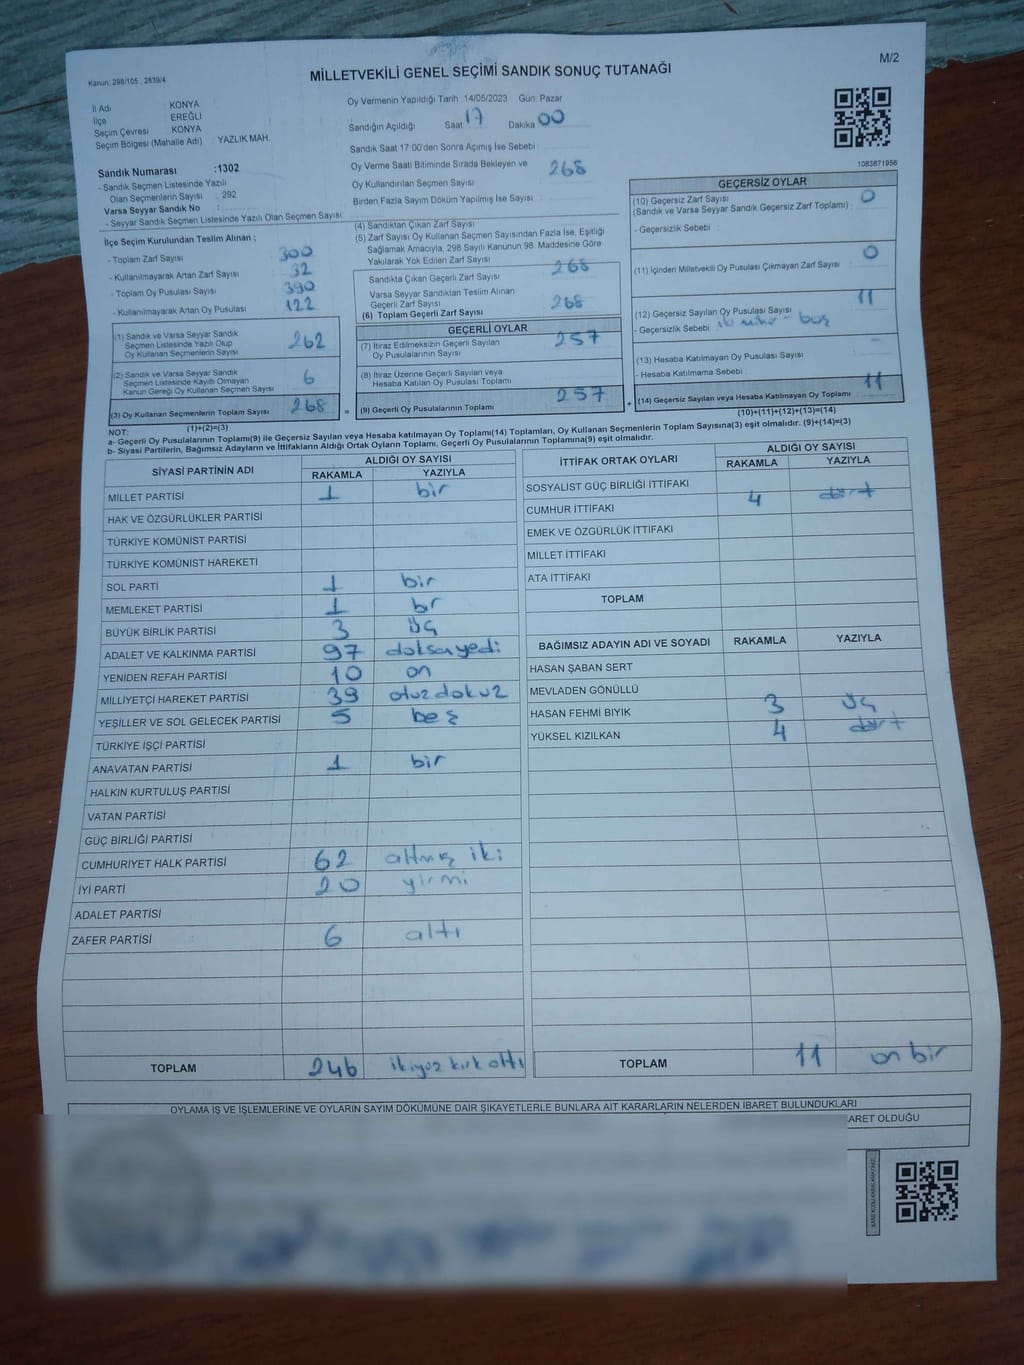 Kanun: 298/105 , 2839/4
MİLLETVEKİLİ GENEL SEÇİMİ SANDIK SONUÇ TUTANAĞI
M/2
İl Adı KONYA
İlçe EREĞLİ
Seçim Çevresi KONYA
Seçim Bölgesi (Mahalle Adi) : YAZLIK MAH.
Sandık Numarası :1302
- Sandık Seçmen Listesinde Yazılı
Olan Seçmenlerin Sayısı : 292
Varsa Seyyar Sandık No :
- Seyyar Sandık Seçmen Listesinde Yazılı Olan Seçmen Sayısı :
Oy Vermenin Yapıldığı Tarih :14/05/2023 Gün: Pazar
Sandığın Açıldığı Saat 17 Dakika 00
Sandık Saat 17:00'den Sonra Açımış İse Sebebi :
Oy Verme Saati Bitiminde Sırada Bekleyen ve
Oy Kullandırılan Seçmen Sayısı 268
Birden Fazla Sayım Döküm Yapılmış İse Sayısı :
1083871956
İlçe Seçim Kurulundan Teslim Alınan ;
- Toplam Zarf Sayısı : 300
- Kullanılmayarak Artan Zarf Sayısı : 32
- Toplam Oy Pusulası Sayısı : 390
- Kullanılmayarak Artan Oy Pusulası : 122
(1) Sandık ve Varsa Seyyar Sandık
Seçmen Listesinde Yazılı Olup
Oy Kullanan Seçmenlerin Sayısı 262
(2) Sandık ve Varsa Seyyar Sandık
Seçmen Listesinde Kayıtlı Olmayan
Kanun Gereği Oy Kullanan Seçmen Sayısı 6
(3) Oy Kullanan Seçmenlerin Toplam Sayısı 268
(1)+(2)=(3)
(4) Sandıktan Çıkan Zarf Sayısı
(5) Zarf Sayısı Oy Kullanan Seçmen Sayısından Fazla İse, Eşitliği
Sağlamak Amacıyla, 298 Sayılı Kanunun 98. Maddesine Göre
Yakılarak Yok Edilen Zarf Sayısı
Sandıkta Çıkan Geçerli Zarf Sayısı 268
Varsa Seyyar Sandıktan Teslim Alınan
Geçerli Zarf Sayısı
(6) Toplam Geçerli Zarf Sayısı 268
GEÇERLİ OYLAR
(7) İtiraz Edilmeksizin Geçerli Sayılan
Oy Pusulalarının Sayısı 257
(8) İtiraz Üzerine Geçerli Sayılan veya
Hesaba Katılan Oy Pusulası Toplamı
= (9) Geçerli Oy Pusulalarının Toplamı 257 +
GEÇERSİZ OYLAR
(10) Geçersiz Zarf Sayısı
(Sandık ve Varsa Seyyar Sandık Geçersiz Zarf Toplamı) : 0
- Geçersizlik Sebebi :
(11) İçinden Milletvekili Oy Pusulası Çıkmayan Zarf Sayısı 0
(12) Geçersiz Sayılan Oy Pusulası Sayısı 11
- Geçersizlik Sebebi : boş
(13) Hesaba Katılmayan Oy Pusulası Sayısı -
- Hesaba Katılmama Sebebi :
(14) Geçersiz Sayılan veya Hesaba Katılmayan Oy Toplamı 11
(10)+(11)+(12)+(13)=(14)
NOT:
a- Geçerli Oy Pusulalarının Toplamı(9) ile Geçersiz Sayılan veya Hesaba katılmayan Oy Toplamı(14) Toplamları, Oy Kullanan Seçmenlerin Toplam Sayısına(3) eşit olmalıdır. (9)+(14)=(3)
b- Siyasi Partilerin, Bağımsız Adayların ve İttifakların Aldığı Ortak Oyların Toplamı, Geçerli Oy Pusulalarının Toplamına(9) eşit olmalıdır.
SİYASİ PARTİNİN ADI ALDIĞI OY SAYISI
RAKAMLA YAZIYLA
MİLLET PARTİSİ 1 bir
HAK VE ÖZGÜRLÜKLER PARTİSİ
TÜRKİYE KOMÜNİST PARTİSİ
TÜRKİYE KOMÜNİST HAREKETİ
SOL PARTİ 1 bir
MEMLEKET PARTİSİ 1 bir
BÜYÜK BİRLİK PARTİSİ 3 üç
ADALET VE KALKINMA PARTİSİ 97 doksanyedi
YENİDEN REFAH PARTİSİ 10 on
MİLLİYETÇİ HAREKET PARTİSİ 39 otuzdokuz
YEŞİLLER VE SOL GELECEK PARTİSİ 5 beş
TÜRKİYE İŞÇİ PARTİSİ
ANAVATAN PARTİSİ 1 bir
HALKIN KURTULUŞ PARTİSİ
VATAN PARTİSİ
GÜÇ BİRLİĞİ PARTİSİ
CUMHURİYET HALK PARTİSİ 62 altmış iki
İYİ PARTİ 20 yirmi
ADALET PARTİSİ
ZAFER PARTİSİ 6 altı
TOPLAM 246 ikiyüz kırk altı
İTTİFAK ORTAK OYLARI ALDIĞI OY SAYISI
RAKAMLA YAZIYLA
SOSYALİST GÜÇ BİRLİĞİ İTTİFAKI
CUMHUR İTTİFAKI 4 dört
EMEK VE ÖZGÜRLÜK İTTİFAKI
MİLLET İTTİFAKI
ATA İTTİFAKI
TOPLAM
BAĞIMSIZ ADAYIN ADI VE SOYADI RAKAMLA YAZIYLA
HASAN ŞABAN SERT
MEVLADEN GÖNÜLLÜ
HASAN FEHMİ BIYIK 3 üç
YÜKSEL KIZILKAN 4 dört
TOPLAM 11 on bir
OYLAMA İŞ VE İŞLEMLERİNE VE OYLARIN SAYIM DÖKÜMÜNE DAİR ŞİKAYETLERLE BUNLARA AİT KARARLARIN NELERDEN İBARET BULUNDUKLARI
ARET OLDUĞU